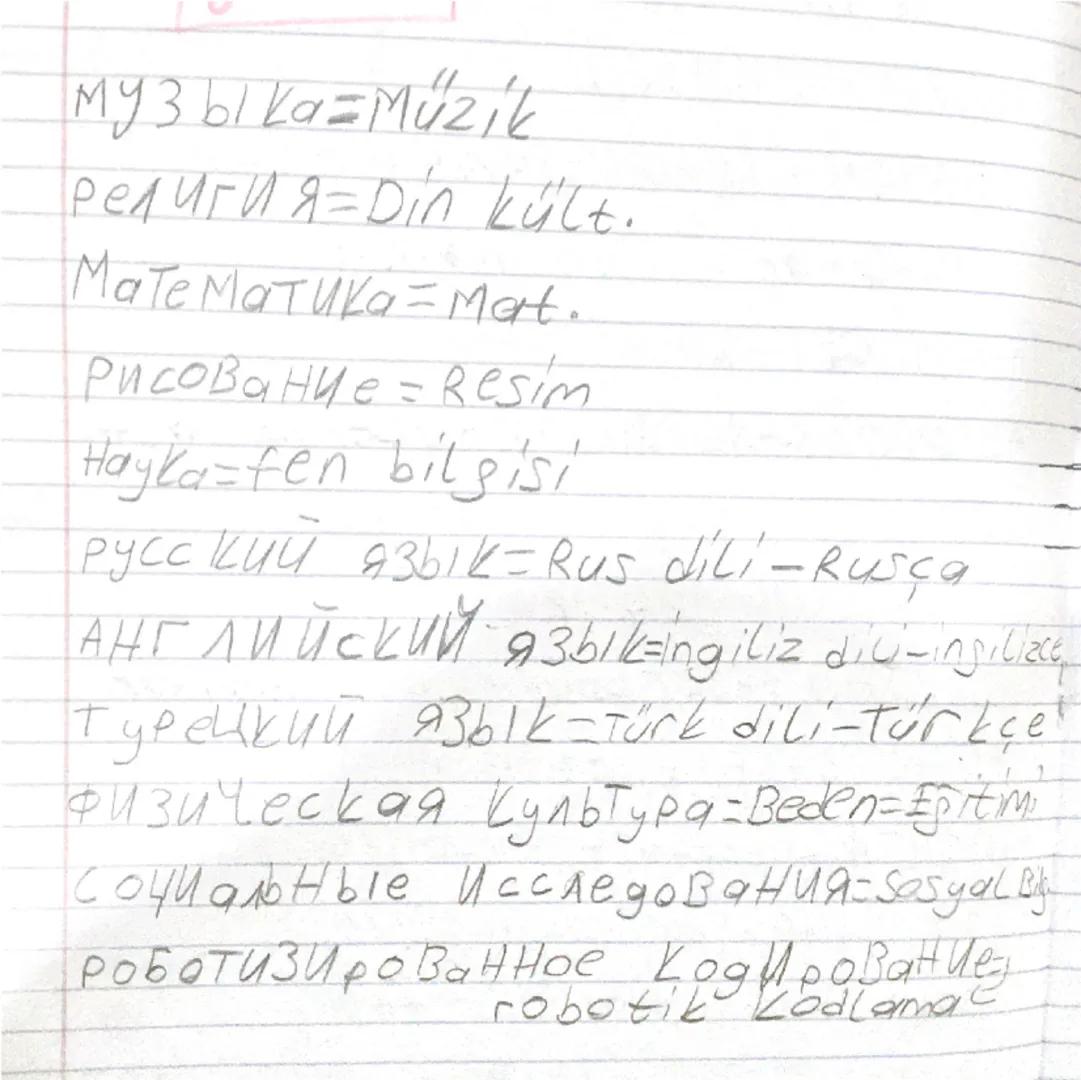 музыка=Müzik
религия=Din kült.
Математика=Mat.
рисование=Resim
Наука=fen bilgisi
русский язык=Rus dili-Rusça
Английский язык=ingiliz dili-ingilizce
Турецкий язык=Türk dili-Türkçe
физическая культура=Beden=Eğitimi
социальные исследования=Sosyal Bilg
роботизированное кодирование=
robotik kodlama